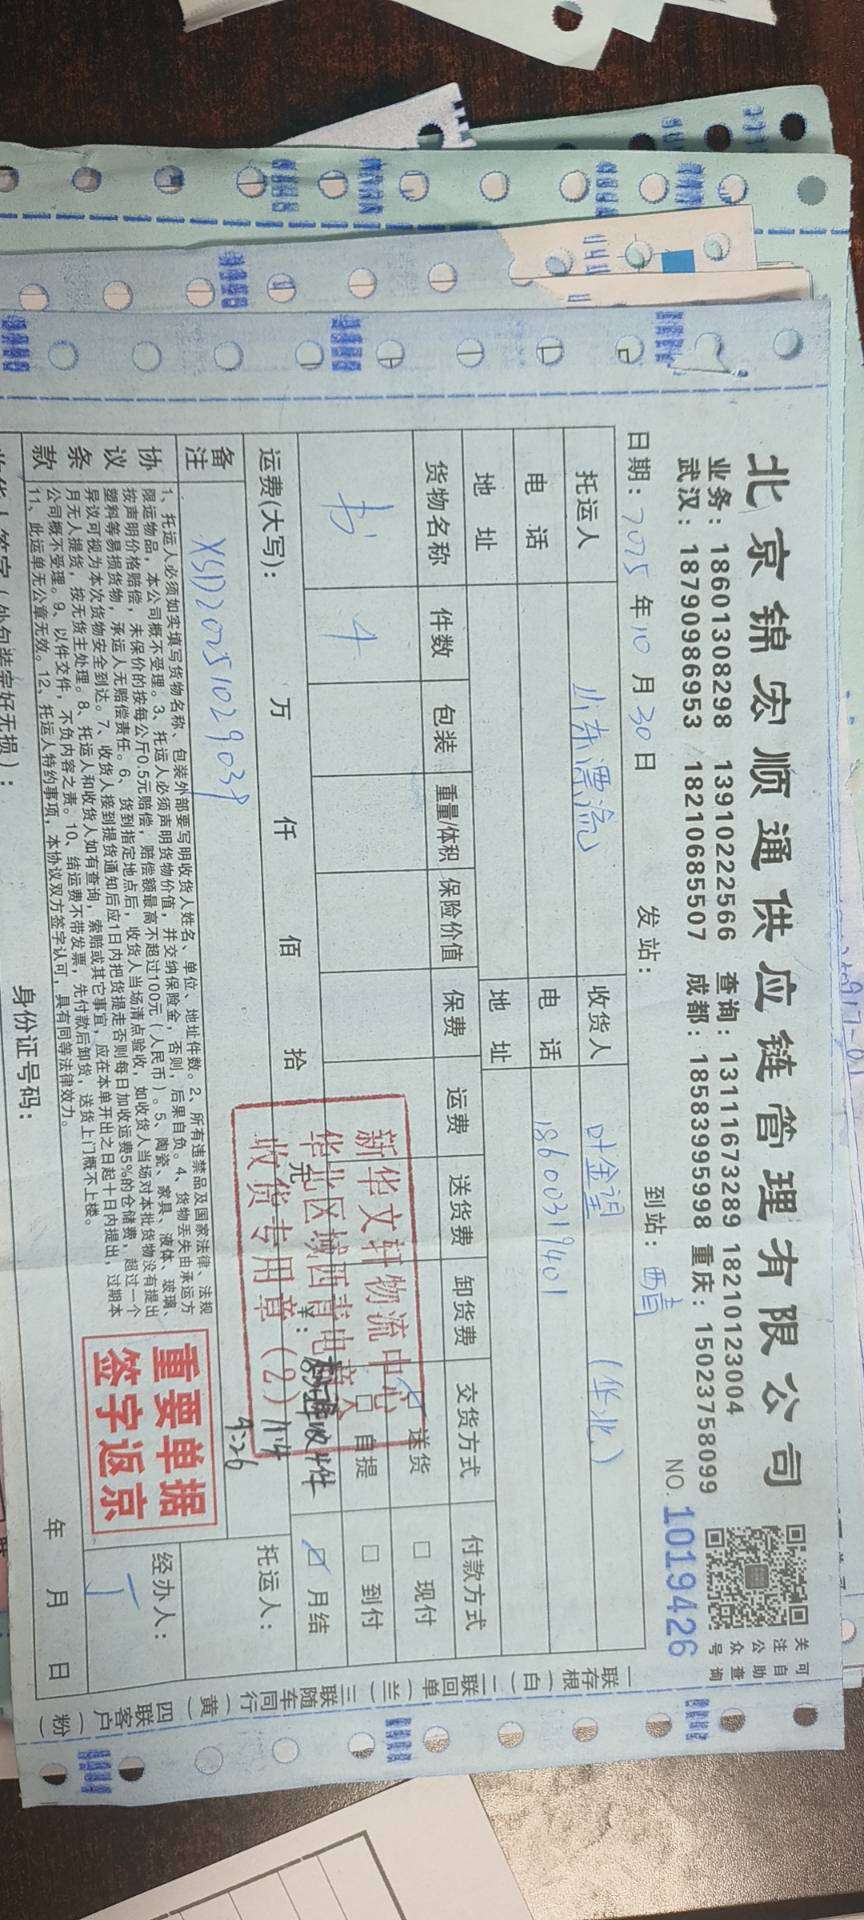 北京锦宏顺通供应链管理有限公司
业务：18601308298 13910222566 查询：13111673289 18210123004
武汉：18790986953 18210685507 成都：18583995998 重庆：15023758099
可自助查询
关注公众号
日期：2025年10月30日 发站： 到站：西青 NO.1019426
托运人 山东漂流 收货人 叶金望 （华北）
电话 电话 18600319401
地址 地址
货物名称 件数 包装 重量/体积 保险价值 保费 运费 送货费 卸货费 交货方式 付款方式
书 4 送货 □ 现付
□ 自提 □ 到付
运费(大写)： 万 仟 佰 拾 元 ¥： ☑ 月结
新华文轩物流中心
华北区域西青
收货专用章（2）
收4件
9:26
备注 XSD20251029039 托运人：
协议条款
1、托运人必须如实填写货物名称、包装外部要写明收货人姓名、单位、地址件数。2、所有违禁品及国家法律、法规
限运物品，本公司概不受理。3、托运人必须声明货物价值，并交纳保险金，否则，后果自负。4、货物丢失由承运方
按声明价格赔偿，未保价的按每公斤0.5元赔偿，赔偿额最高不超过100元（人民币）。5、陶瓷、家具、液体、玻璃、
塑料等易损货物，承运人无赔偿责任。6、货到指定地点后，收货人当场清点验收，如收货人当场对本批货物没有提出
异议可视为本次货物安全到达。7、收货人接到提货通知后应1日内把货提走否则每日加收运费5%的仓储费，超过一个
月无人提货，按无货主处理。8、托运人和收货人如有查询，索赔或其它事宜，应在本单开出之日起十日内提出，过期本
公司概不受理。9、以件交件，不负内容之责。10、结运费不带发票，先付款后卸货，送货上门概不上楼。
11、此运单无公章无效。12、托运人特约事项，本协议双方签字认可，具有同等法律效力。
重要单据
签字返京
经办人：
丁
收货人签字（外包装完好无损）： 身份证号码： 年 月 日
一联存根（白） 二联回单（兰） 三联随车同行（黄） 四联客户（粉）